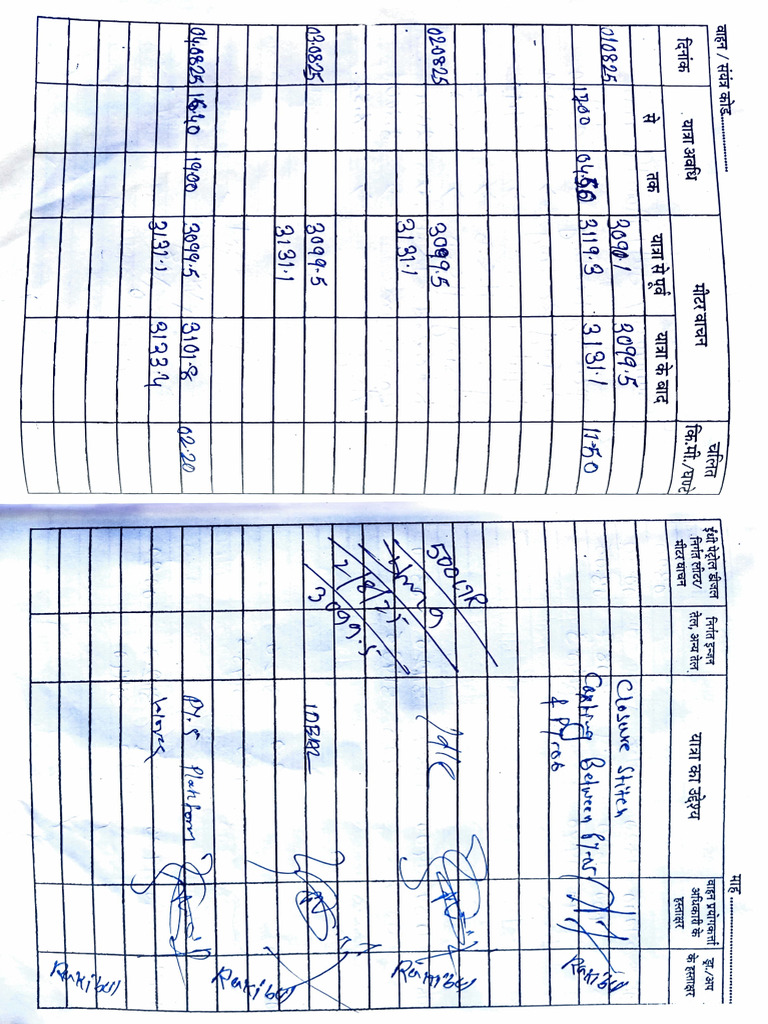 वाहन / संयंत्र कोड..................
माह ..................
दिनांक
यात्रा अवधि
से
तक
मीटर वाचन
यात्रा से पूर्व
यात्रा के बाद
चलित
कि.मी./घण्टे
ईंधी पेट्रोल डीजल
निर्गत लीटर/
मीटर वाचन
निर्गत इन्जन
तेल, अन्य तेल
यात्रा का उद्देश्य
वाहन प्रयोगकर्त्ता
अधिकारी के
हस्ताक्षर
ड्रा./आप
के हस्ताक्षर
010825 3090.1 3099.5 Closure Stitch
1700 04.50 3119.3 3131.1 11.50 Casting Between PY-05
& PY-06
Rakibul
020825 3099.5 500 LTR Idle
3131.1 Rakibul
2/8/25
3099.5
030825 3099.5 IDEAL
3131.1
Rakibul
040825 1640 1900 3099.5 3101.8 02.20 PY.5 Platform
3131.1 3133.4 Works
Rakibul